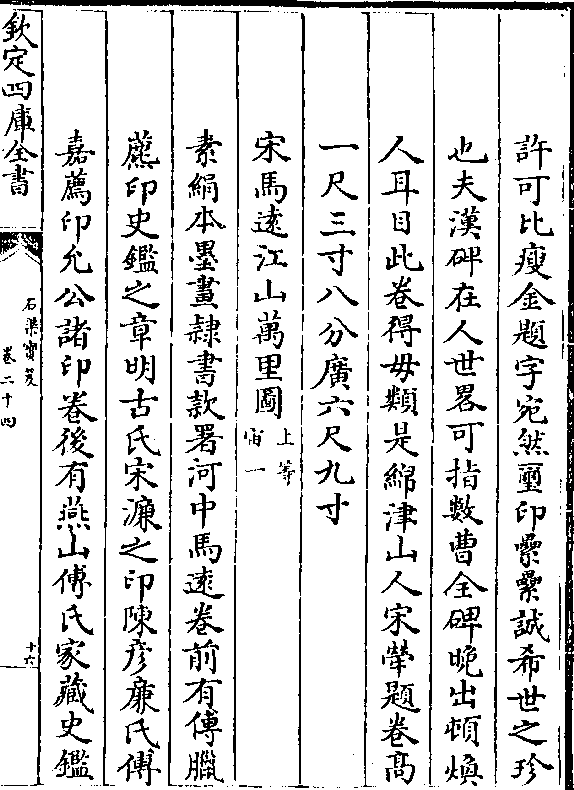 許可比瘦金題字宛然璽印纍纍誠希世之珍
也夫漢碑在人世畧可指數曹全碑晚出頓煥
人耳目此卷得毋類是綿津山人宋犖題卷髙
一尺三寸八分廣六尺九寸
宋馬逺江山萬里圖上等宙一
素絹本墨畫隷書款署河中馬逺卷前有傅臘
薦印史鑑之章明古氏宋濂之印陳彦亷氏傅
嘉薦印允公諸印卷後有燕山傅氏家藏史鑑
欽定四庫全書
石渠寳笈
卷二十四
十六